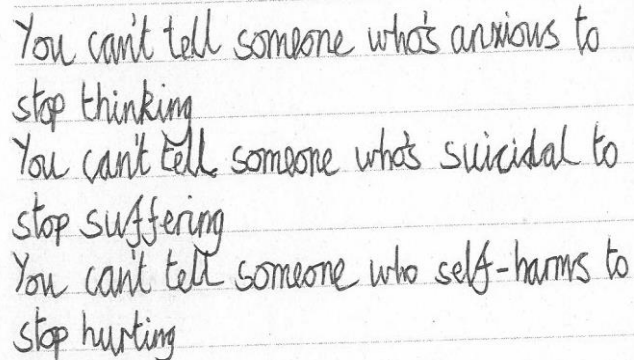 You can't tell someone who's anxious to
stop thinking
You can't tell someone who's suicidal to
stop suffering
You can't tell someone who self-harms to
stop hurting